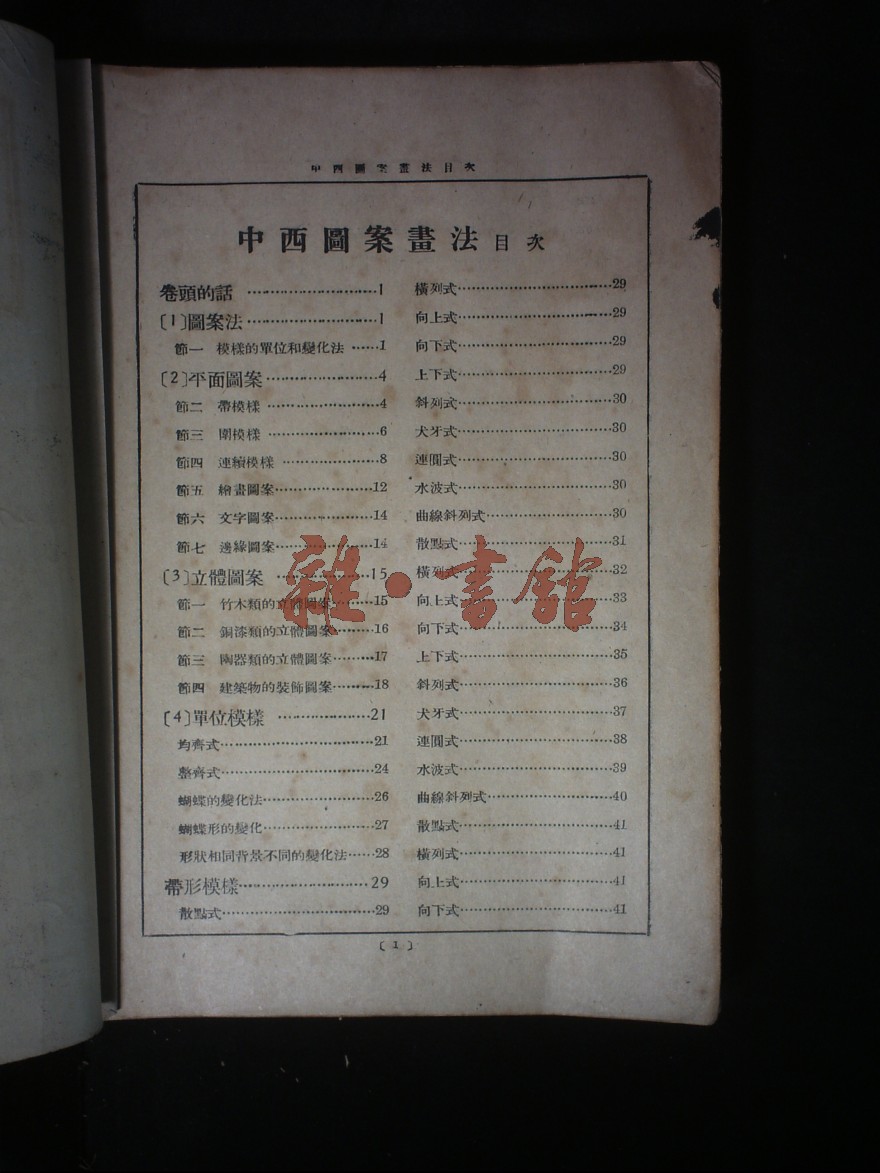 中西圖案畫法目次
中西圖案畫法 目次
卷頭的話 …………………1
〔1〕圖案法…………………1
節一 模樣的單位和變化法 ……1
〔2〕平面圖案………………4
節二 帶模樣 ………………4
節三 圍模樣 ………………6
節四 連續模樣 ……………8
節五 繪畫圖案……………12
節六 文字圖案……………14
節七 邊緣圖案……………14
〔3〕立體圖案 ……………15
節一 竹木類的立體圖案………15
節二 銅漆類的立體圖案………16
節三 陶器類的立體圖案………17
節四 建築物的裝飾圖案………18
〔4〕單位模樣 ……………21
均齊式……………………21
整齊式……………………24
蝴蝶的變化法………………26
蝴蝶形的變化………………27
形狀相同背景不同的變化法……28
帶形模樣…………………29
散點式……………………29
橫列式……………………29
向上式……………………29
向下式……………………29
上下式……………………29
斜列式……………………30
犬牙式……………………30
連圓式……………………30
水波式……………………30
曲線斜列式…………………30
散點式……………………31
橫列式……………………32
向上式……………………33
向下式……………………34
上下式……………………35
斜列式……………………36
犬牙式……………………37
連圓式……………………38
水波式……………………39
曲線斜列式…………………40
散點式……………………41
橫列式……………………41
向上式……………………41
向下式……………………41
〔1〕
雜·書館